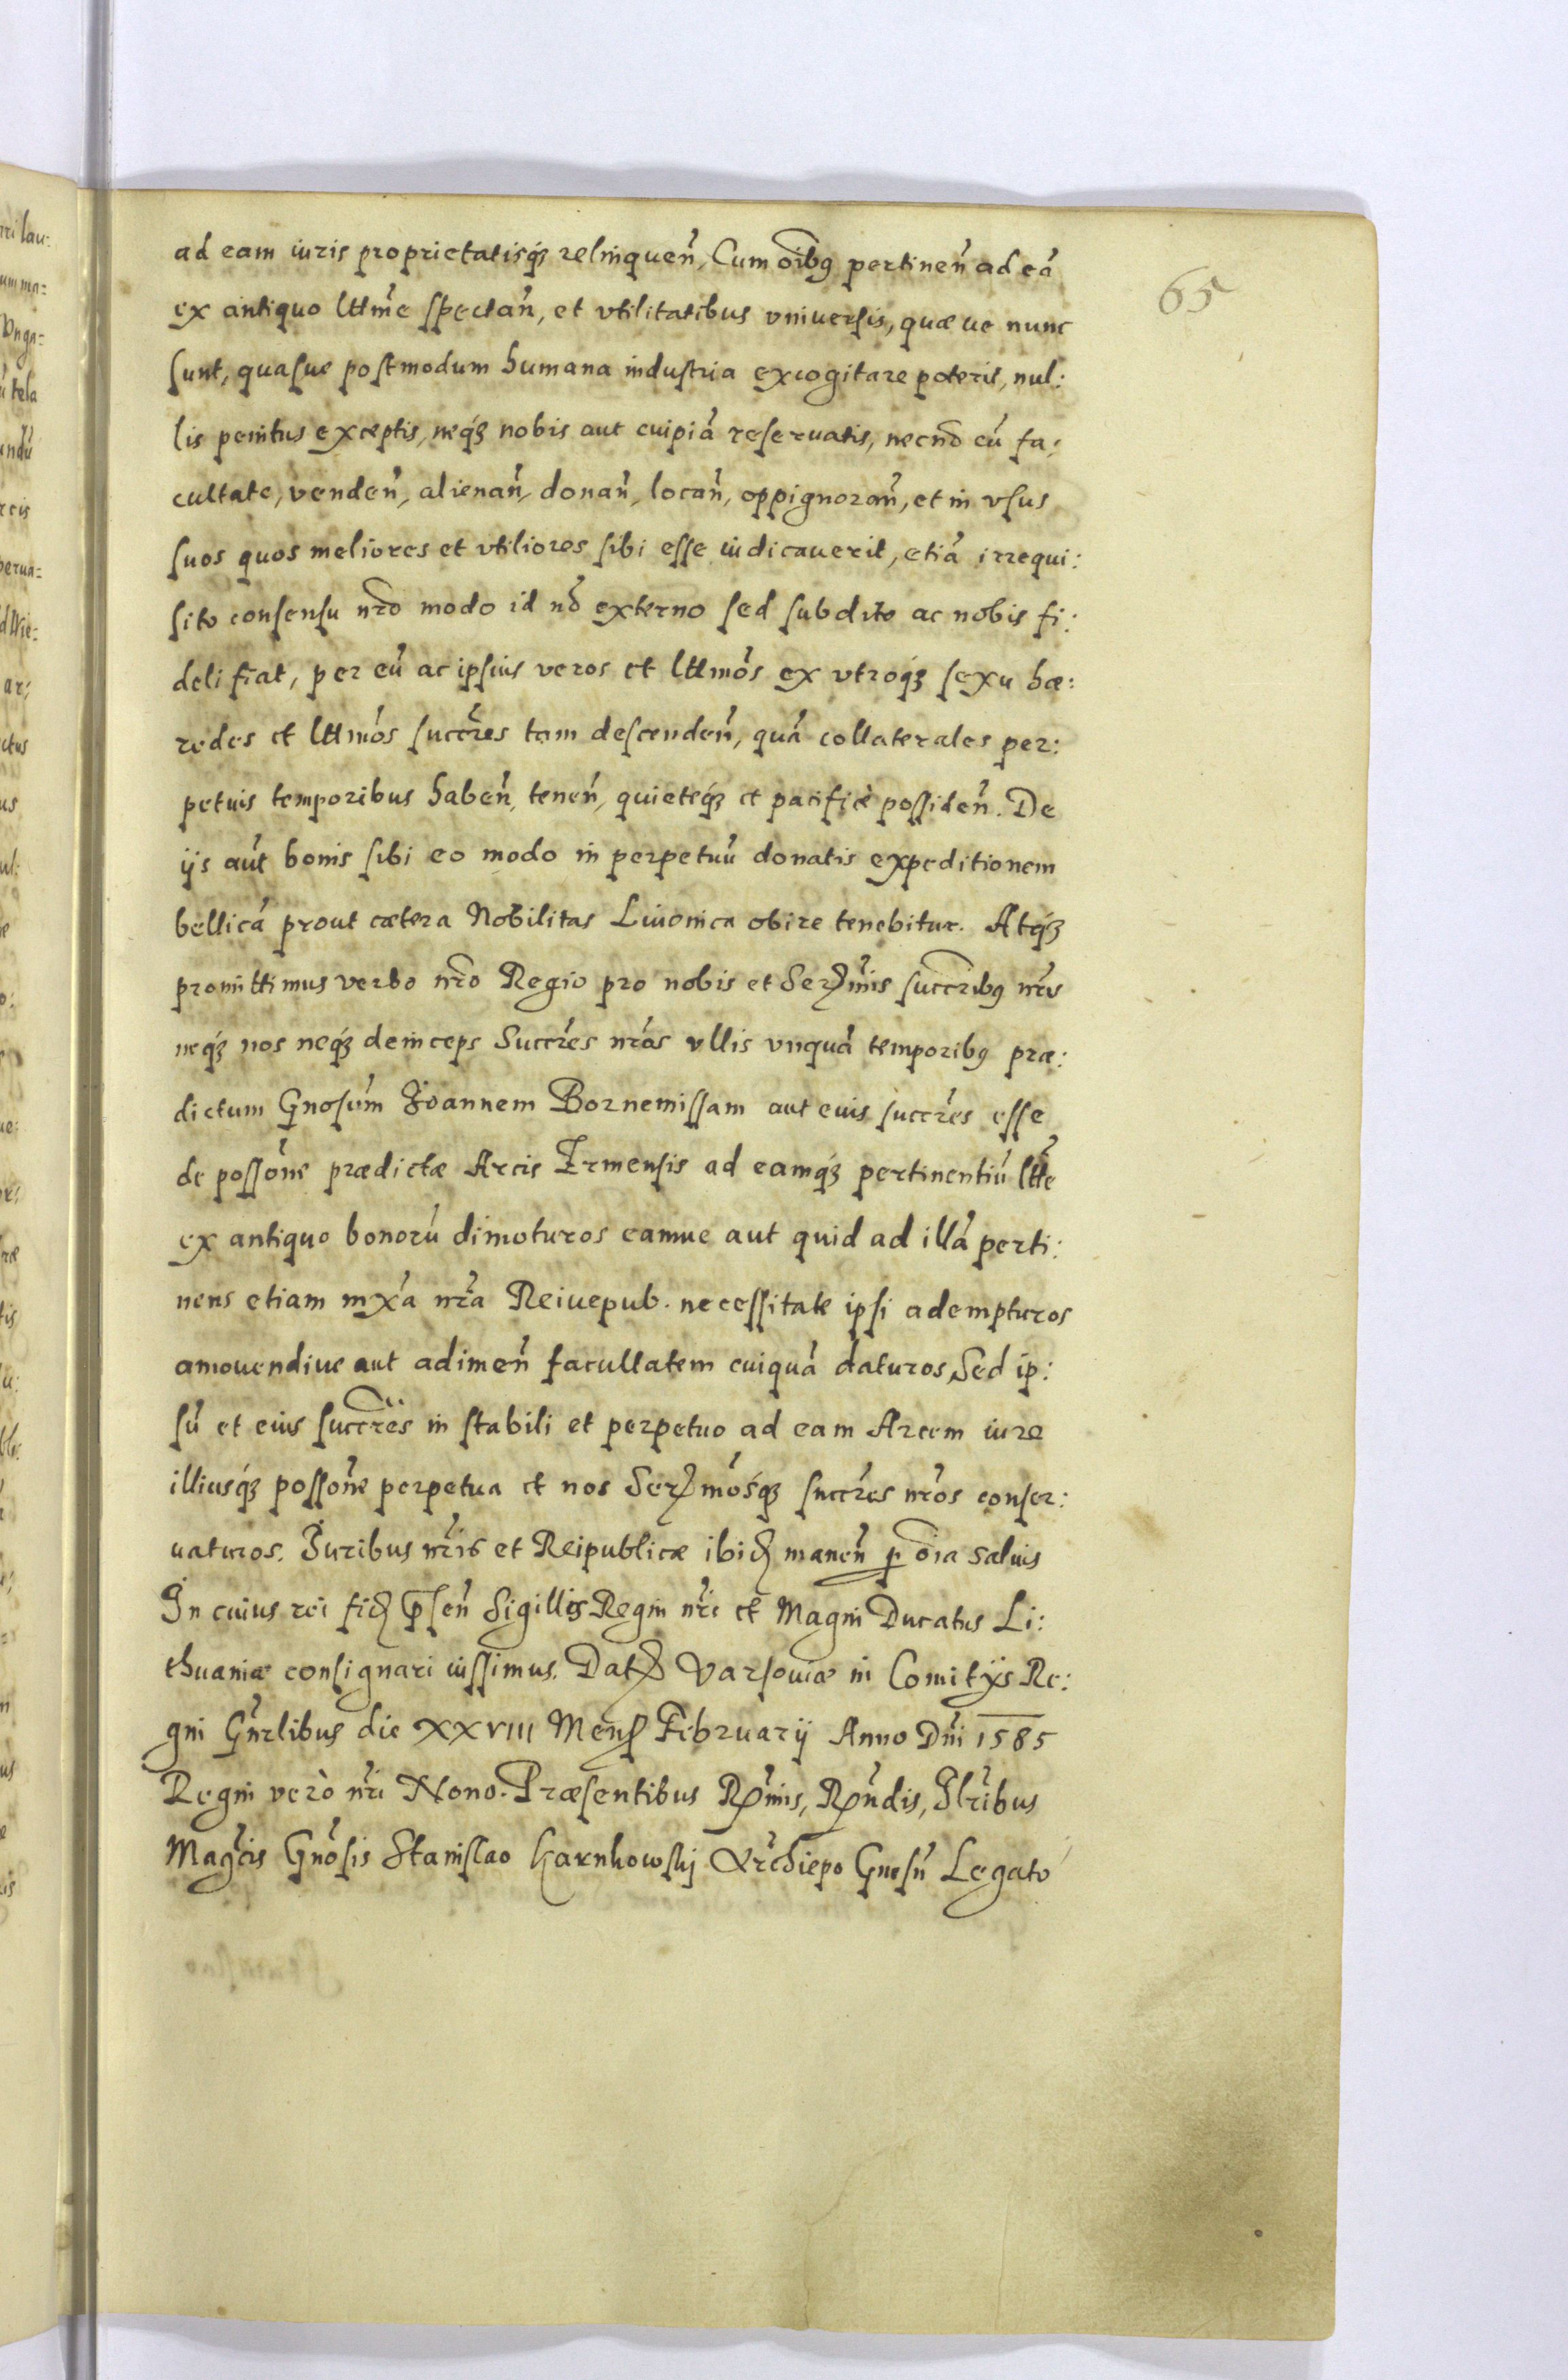 65
ad eam iuris proprietatisq́ꝫ relinqueñ, Cum oĩbꝰ pertineñ ad eã
ex antiquo lttĩme spectañ, et vtilitatibus vniuersis, quæ ue nunc
sunt, quasue postmodum humana industria excogitare poterit, nul:
lis penitus exceptis, neq́ꝫ nobis aut cuipiã reseruatis, necnõ cũ fa:
cultate, vendeñ, alienañ, donañ, locañ, oppignorañ, et in vsus
suos quos meliores et vtiliores sibi esse iudicauerit, etiã irrequi:
sito consensu nr̃o modo id nõ externo sed subdito ac nobis fi:
deli fiat, per eũ ac ipsius veros et lttmõs ex vtroq́ꝫ sexu hæ:
redes et lttmõs succr̃es tam descendeñ, quã collaterales per:
petuis temporibus habeñ, teneñ, quieteq́ꝫ et pacificè possideñ. De
ijs aũt bonis sibi eo modo in perpetuũ donatis expeditionem
bellicã prout cætera Nobilitas Liuonica obire tenebitur. Atq́ꝫ
promittimus verbo nr̃o Regio pro nobis et Serꝫmĩs succr̃ibꝰ nr̃is
neq́ꝫ nos neq́ꝫ deinceps Succr̃es nr̃os vllis vnquã temporibꝰ præ:
dictum Gnosũm Joannem Bornemissam aut euis succr̃es esse
de possõne prædictæ Arcis Ermensis ad eamq́ꝫ pertinentiũ ltt̃e
ex antiquo bonorũ dimoturos eamue aut quid ad illã perti:
nens etiam mxã nr̃a Reiuepub. necessitate ipsi adempturos
amouendiue aut adimeñ facultatem cuiquã daturos, Sed ip:
sũ et eius succr̃es in stabili et perpetuo ad eam Arcem iure
illiusq́ꝫ possõne perpetua et nos Serꝫmõsq́ꝫ succr̃es nr̃os conser:
uaturos. Juribus nr̃is et Reipublicæ ibidꝫ maneñ ꝑ oĩa saluis
In cuius rei fidꝫ p̃señ Sigillis Regni nr̃i et Magni Ducatus Li:
thuaniæ consignari iussimus. Datꝫ Varsouiæ in Comitijs Re:
gni Gñrlibus die XXVIII Mensꝫ Februarij Anno Dñi 1585
Regni verò nr̃i Nono. Præsentibus Rꝫmĩs, Rꝫñdis, Jllr̃ibus
Magc̃is Gnõsis Stanislao Karnkowskj Archiepo Gnesñ Legato